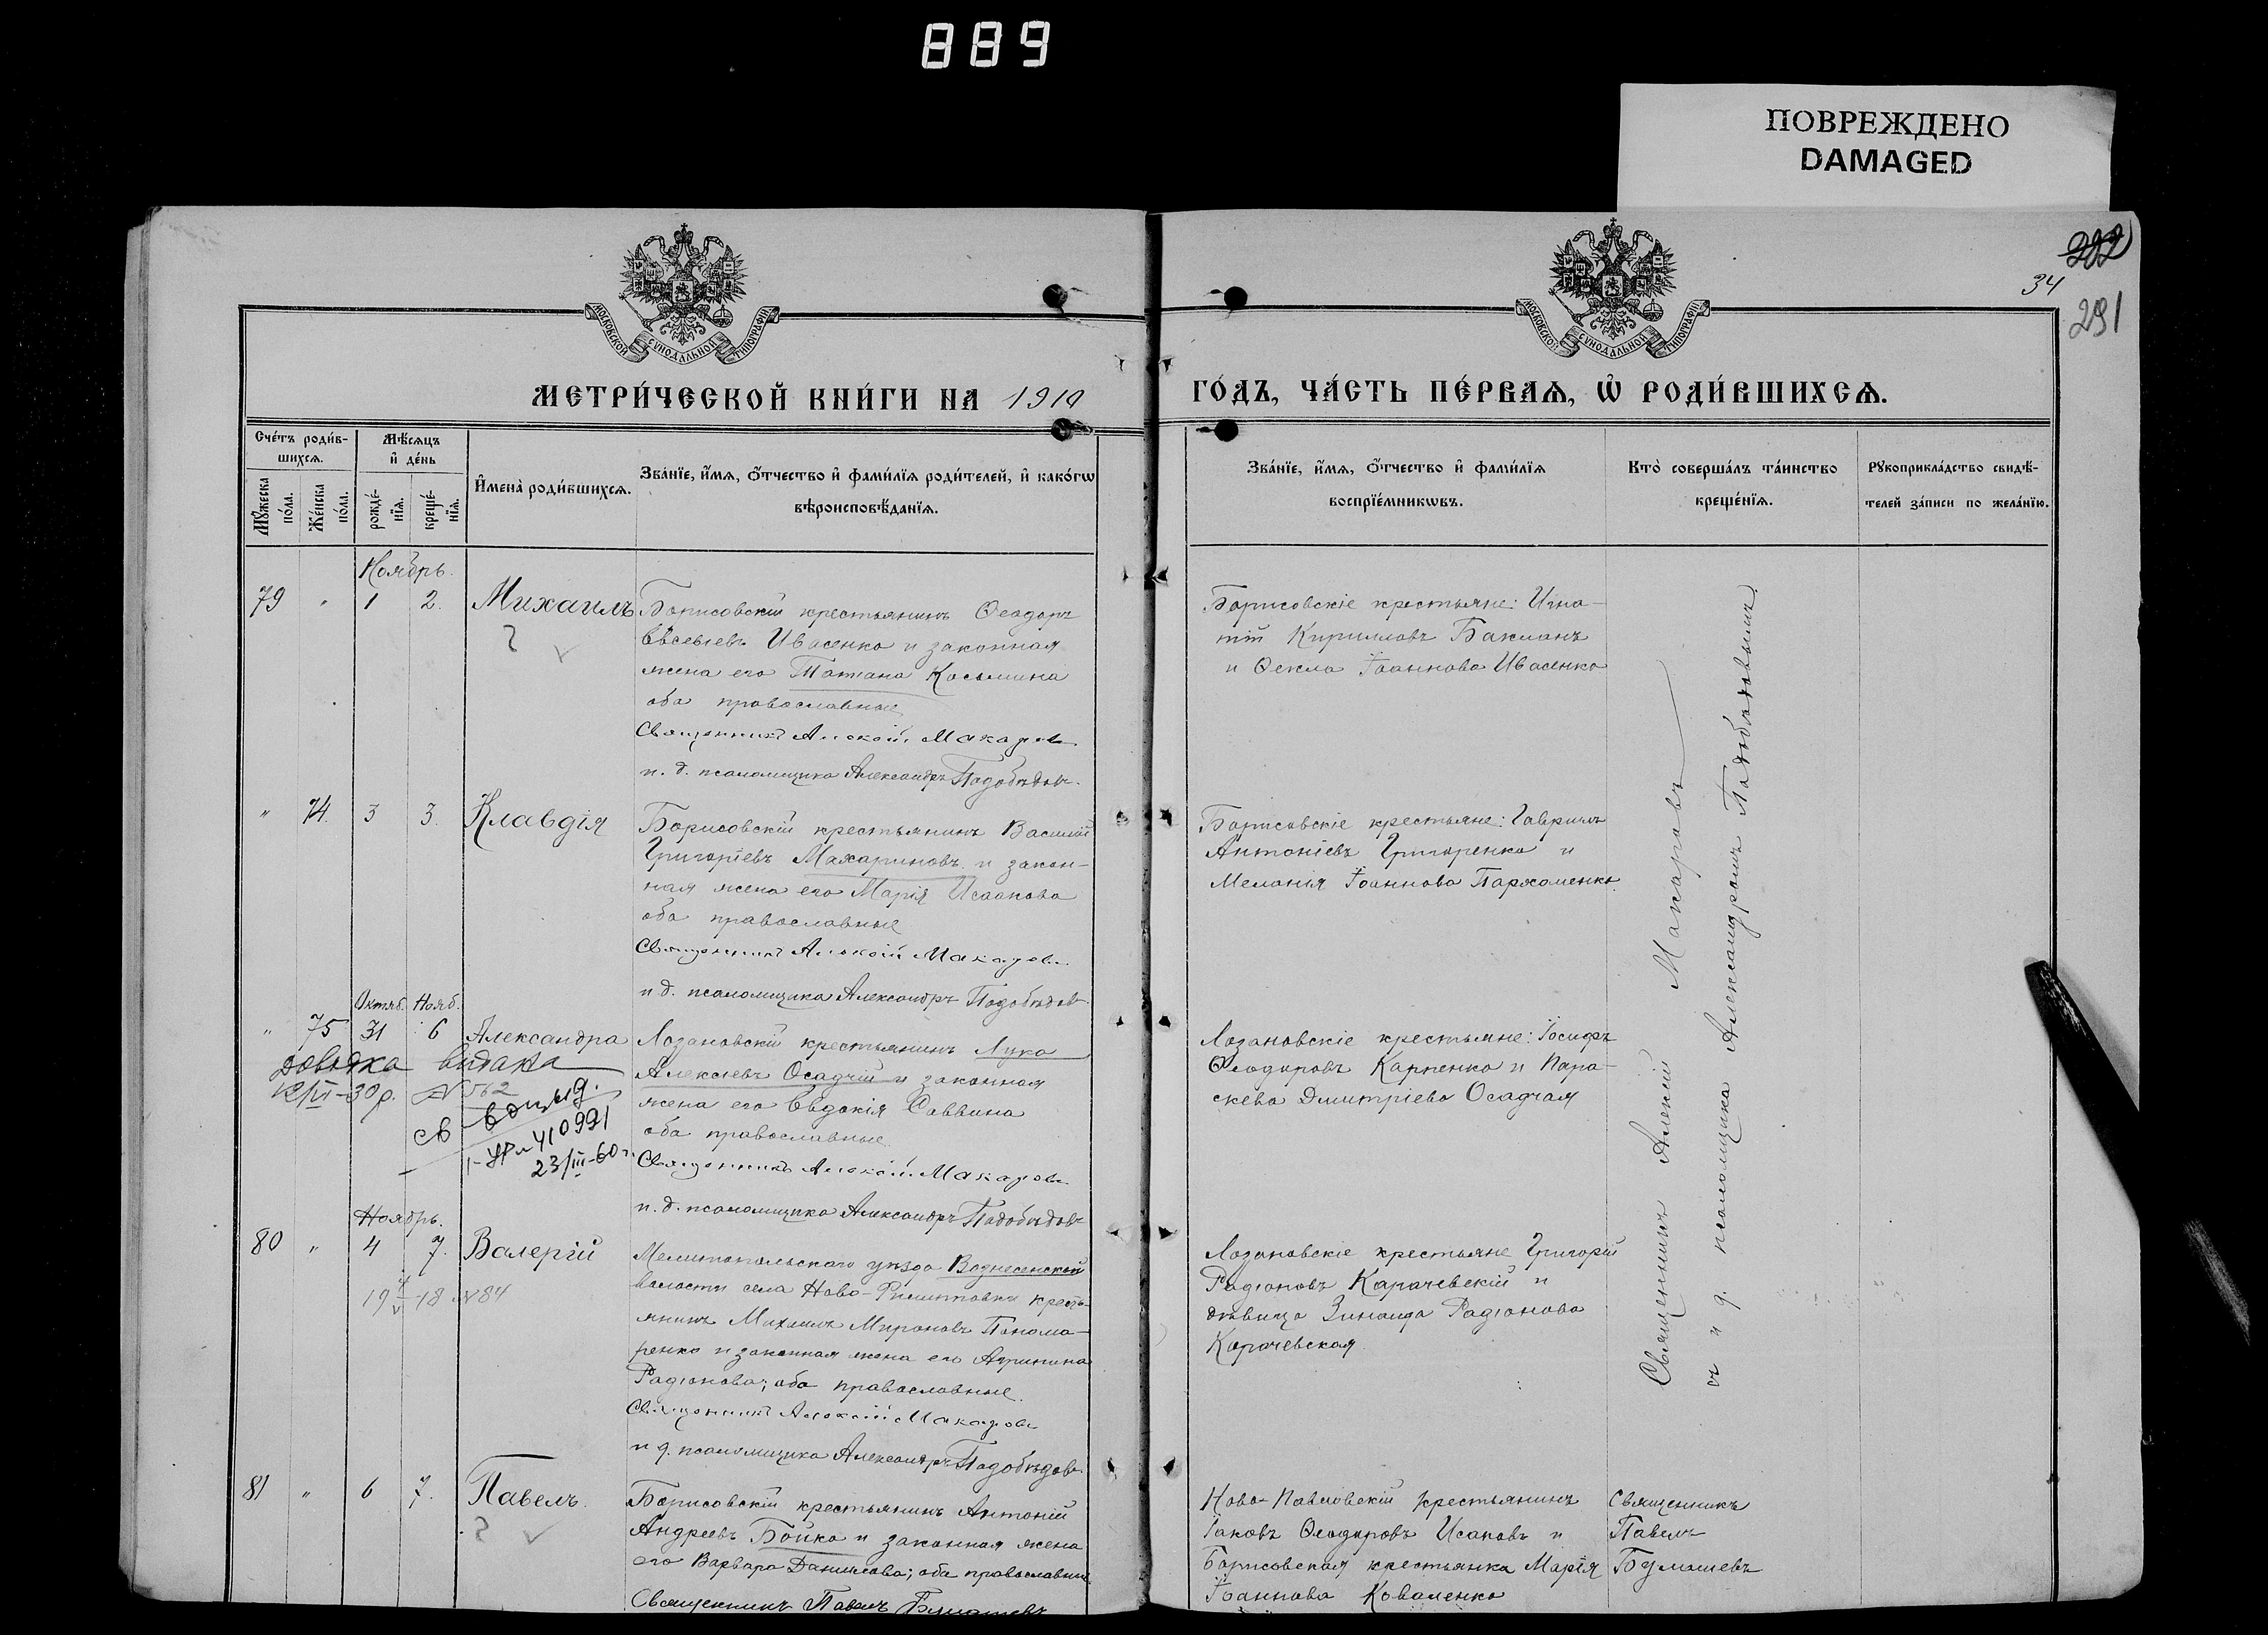 889
ПОВРЕЖДЕНО
DAMAGED
202
34
291
МОСКОВСКОЙ СѴНОДАЛЬНОЙ ТИПОГРАФІИ
МОСКОВСКОЙ СѴНОДАЛЬНОЙ ТИПОГРАФІИ
МЕТРИ́ЧЕСКОЙ КНИ́ГИ НА 1910
ГО́ДЪ, ЧА́СТЬ ПЕ́РВАѦ, Ѡ҆ РОДИ́ВШИХСѦ.
Сче́тъ роди́в-
шихсѧ.
Мꙋ́жеска по́ла.
Же́нска по́ла.
Мѣ́сѧцъ
и҆ де́нь
рожде́-нїѧ.
креще́-нїѧ.
И҆мена̀ роди́вшихсѧ.
Зва́нїе, и҆́мѧ, ѻ҆́тчество и҆ фами́лїѧ роди́телей, и҆ како́гѡ
вѣроисповѣ́данїѧ.
Зва́нїе, и҆́мѧ, ѻ҆́тчество и҆ фами́лїѧ
воспрїе́мникѡвъ.
Кто̀ соверша́лъ та́инство
креще́нїѧ.
Рꙋкоприкла́дство свидѣ́-
телей за́писи по жела́нїю.
Ноябрь.
79 " 1 2. Михаилъ
Борисовскій крестьянинъ Ѳеодоръ
Евсевіевъ Ивасенко и законная
жена его Татіана Косьмина
оба православные
Священникъ Алексій Макаровъ
и. д. псаломщика Александръ Подобѣдовъ.
Борисовскіе крестьяне: Игна-
тій Кирилловъ Бакланъ
и Ѳекла Іоаннова Ивасенко
" 74. 3 3. Клавдія
Борисовскій крестьянинъ Василій
Григоріевъ Махариновъ и закон-
ная жена его Марія Исаакова
оба православные
Священникъ Алексій Макаровъ
и д. псаломщика Александръ Подобѣдовъ.
Борисовскіе крестьяне: Гавриилъ
Антоніевъ Григоренко и
Меланія Іоаннова Пархоменко.
Октяб. Нояб.
" 75 31 6 Александра
довідка видана
12/III-30 р. N 562
св
410991
23/III-60 г.
Лозановскій крестьянинъ Лука
Алексіевъ Осадчій и законная
жена его Евдокія Саввина
оба православные
Священникъ Алексій Макаровъ
и. д. псаломщика Александръ Подобѣдовъ
Лозановскіе крестьяне: Іосифъ
Ѳеодоровъ Карпенко и Пара-
скева Димитріева Осадчая
Ноябрь.
80 " 4 7. Валерій
19 4/V 18 N84
Мелитопольскаго уѣзда Вознесенской
волости села Ново-Филипповки кресть-
янинъ Михаилъ Мироновъ Понома-
ренко и законная жена его Агрипина
Радіонова; оба православные.
Священникъ Алексій Макаровъ
и д. псаломщика Александръ Подобѣдовъ
Лозановскіе крестьяне Григорій
Радіоновъ Карачевскій и
дѣвица Зинаида Радіонова
Карачевская
Священникъ Алексій Макаровъ
съ и д. псаломщика Александромъ Подобѣдовымъ.
81 " 6 7. Павелъ.
Борисовскій крестьянинъ Антоній
Андреевъ Бойко и законная жена
его Варвара Данилова; оба православные.
Священникъ Павелъ
Ново-Павловскій крестьянинъ
Іаковъ Ѳеодоровъ Исаковъ и
Борисовская крестьянка Марія
Іоаннова Коваленко
Священникъ
Павелъ